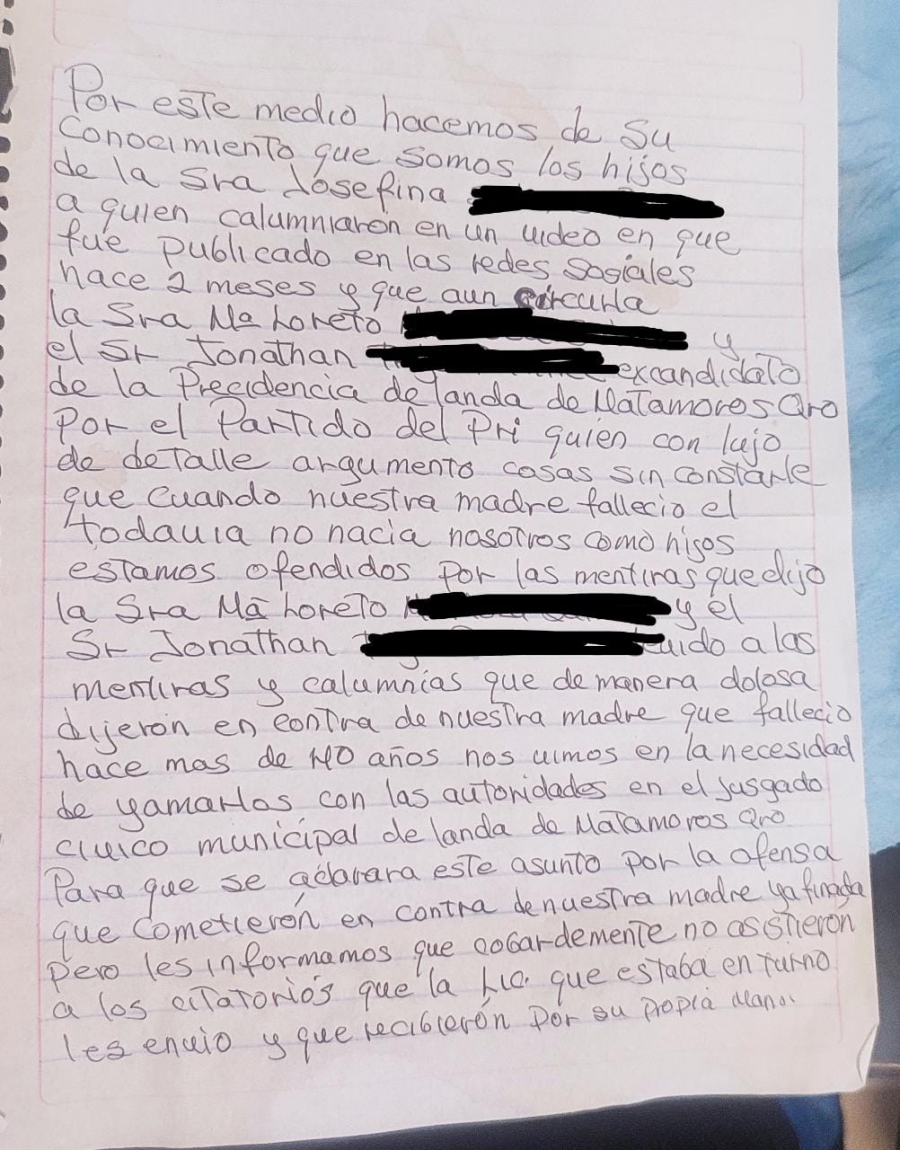 Por este medio hacemos de su
conocimiento que somos los hijos
de la Sra Josefina
a quien calumniaron en un uideo en que
fue publicado en las redes sosiales
hace 2 meses y que aun circurla
la Sra Ma Loreto y
el Sr Jonathan excandidato
de la Precidencia de landa de Matamoros Qro
Por el Partido del Pri quien con lujo
de detalle argumento cosas sin constarle
que cuando nuestra madre fallecio el
todauia no nacia nosotros como hijos
estamos ofendidos por las mentiras que dijo
la Sra Ma Loreto y el
Sr Jonathan uido a las
mentiras y calumnias que de manera dolosa
dijeron en contra de nuestra madre que fallecio
hace mas de 40 años nos uimos en la necesidad
de yamarlos con las autoridades en el jusgado
ciuico municipal de landa de Matamoros Qro
Para que se aclarara este asunto por la ofensa
que cometieron en contra de nuestra madre ya finada
Pero les informamos que cobardemente no asistieron
a los citatorios que la Lic. que estaba en turno
les enuio y que recibieron por su propia mano.